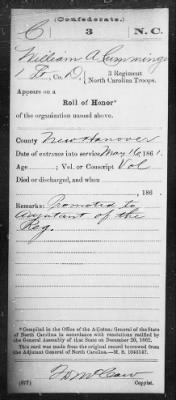 (Confederate.)
C 3 N.C.
William A Cumming
1 Lt., Co. D., 3 Regiment
North Carolina Troops.
Appears on a
Roll of Honor*
of the organization named above.
County New Hanover
Date of entrance into service May 16, 1861.
Age ; Vol. or Conscript Vol
Died or discharged, and when
, 186 .
Remarks: Promoted to
Adjutant of the
Reg.
*Compiled in the Office of the Adjutant General of the State
of North Carolina in accordance with resolutions ratified by
the General Assembly of that State on December 20, 1862.
This card was made from the original record borrowed from
the Adjutant General of North Carolina.—M. S.
Copyist.